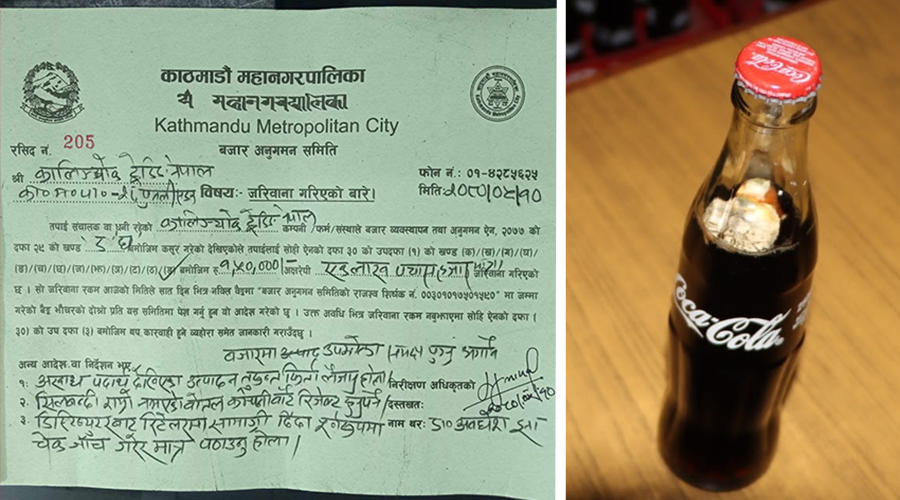 काठमाडौं महानगरपालिका
Kathmandu Metropolitan City
बजार अनुगमन समिति
रसिद नं. 205
श्री कालिञ्चोक ट्रेडिङ नेपाल
फोन नं.: ०१-४२८५६२५
का०म०पा०- विषय: जरिवाना गरिएको बारे।
मिति:
तपाई संचालक वा धनी रहेको कालिञ्चोक ट्रेडिङ नेपाल कम्पनी/फर्म/संस्थाले बजार व्यवस्थापन तथा अनुगमन ऐन, २०७७ को
दफा २८ को खण्ड बमोजिम कसुर गरेको देखिएकोले तपाईलाई सोही ऐनको दफा ३० को उपदफा (१) को खण्ड (क)/(ख)/(ग)/(घ)/
(ङ)/(च)/(छ)/(ज)/(झ)/(ञ)/(ट)/(ठ)/(ड) बमोजिम रु. १,५०,000/- अक्षरेपी एक लाख पचास हजार मात्र। जरिवाना गरिएको
छ । सो जरिवाना रकम आजको मितिले सात दिन भित्र नबिल बैङ्कमा "बजार अनुगमन समितिको राजस्व शिर्षक नं. ००३०१०१७५०१५८०" मा जम्मा
गरेको बैङ्क भौचरको दोस्रो प्रति यस समितिमा पेश गर्नु हुन यो आदेश गरेको छु । उक्त अवधि भित्र जरिवाना रकम नबुझाएमा सोहि ऐनको दफा (
३०) को उप दफा (३) बमोजिम थप कारवाही हुने व्यहोरा समेत जानकारी गराउँदछु ।
बजारमा उत्पाद
अन्य आदेश वा निर्देशन भए:
१. अखाद्य पदार्थ देखिएका उत्पादन तुरुन्त फिर्ता लैजानु होला। निरीक्षण अधिकृतको
२. सिलबन्दी राम्रो नभएको बोतल कम्पनीबाट रिजेक्ट हुनुपर्ने दस्तखत:
३. डिस्ट्रिब्युटरबाट रिटेलरमा सामाग्री दिँदा नाम थर: डा० अवधेश झा
चेक जाँच गरेर मात्र पठाउनु होला।
Coca-Cola
Coca-Cola